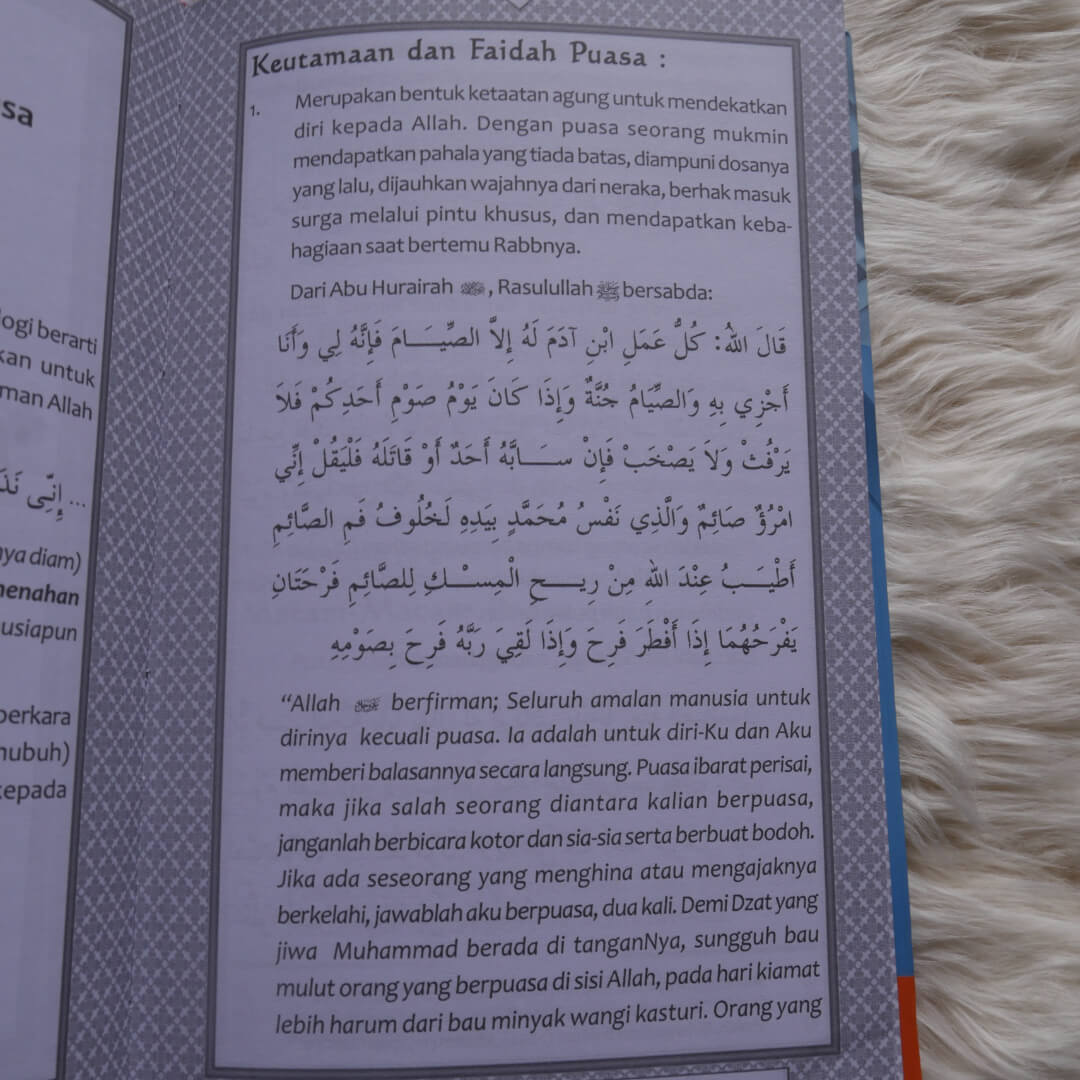 sa
logi berarti
kan untuk
man Allah
... إِنِّى نَذَ
nya diam)
nenahan
usiapun
perkara
nubuh)
kepada
Keutamaan dan Faidah Puasa :
1. Merupakan bentuk ketaatan agung untuk mendekatkan
diri kepada Allah. Dengan puasa seorang mukmin
mendapatkan pahala yang tiada batas, diampuni dosanya
yang lalu, dijauhkan wajahnya dari neraka, berhak masuk
surga melalui pintu khusus, dan mendapatkan keba-
hagiaan saat bertemu Rabbnya.
Dari Abu Hurairah , Rasulullah ﷺ bersabda:
قَالَ اللهُ: كُلُّ عَمَلِ ابْنِ آدَمَ لَهُ إِلاَّ الصِّيَـــامَ فَإِنَّهُ لِي وَأَنَا
أَجْزِي بِهِ وَالصِّيَامُ جُنَّةٌ وَإِذَا كَانَ يَوْمُ صَوْمِ أَحَدِكُمْ فَلاَ
يَرْفُثْ وَلاَ يَصْخَبْ فَإِنْ سَـــابَّهُ أَحَدٌ أَوْ قَاتَلَهُ فَلْيَقُلْ إِنِّي
امْرُؤٌ صَائِمٌ وَالَّذِي نَفْسُ مُحَمَّدٍ بِيَدِهِ لَخُلُوفُ فَمِ الصَّائِمِ
أَطْيَـــبُ عِنْدَ اللهِ مِنْ رِيـــحِ الْمِسْـــكِ لِلصَّائِمِ فَرْحَتَانِ
يَفْرَحُهُمَا إِذَا أَفْطَرَ فَرِحَ وَإِذَا لَقِيَ رَبَّهُ فَرِحَ بِصَوْمِهِ
“Allah berfirman; Seluruh amalan manusia untuk
dirinya kecuali puasa. Ia adalah untuk diri-Ku dan Aku
memberi balasannya secara langsung. Puasa ibarat perisai,
maka jika salah seorang diantara kalian berpuasa,
janganlah berbicara kotor dan sia-sia serta berbuat bodoh.
Jika ada seseorang yang menghina atau mengajaknya
berkelahi, jawablah aku berpuasa, dua kali. Demi Dzat yang
jiwa Muhammad berada di tanganNya, sungguh bau
mulut orang yang berpuasa di sisi Allah, pada hari kiamat
lebih harum dari bau minyak wangi kasturi. Orang yang